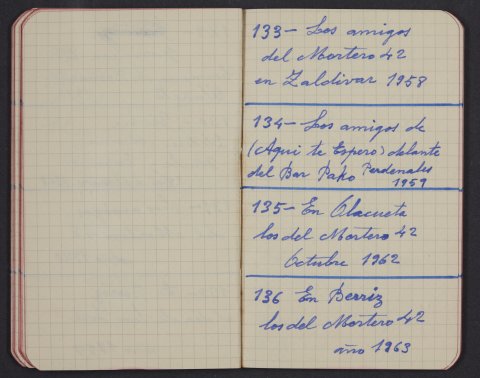 133- Los amigos
del Mortero 42
en Zaldivar 1958
134- Los amigos de
(Aqui te Espero) delante
del Bar Pako Perdenales
1959
135- En Olacueta
los del Mortero 42
Octubre 1962
136 En Berriz
los del Mortero 42
año 1963